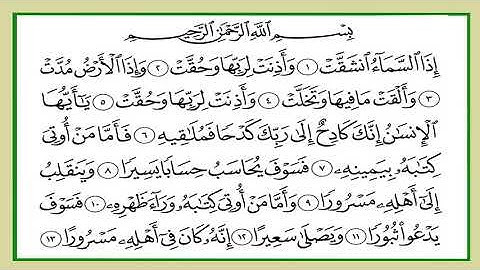 بِسْمِ ٱللَّهِ ٱلرَّحْمَٰنِ ٱلرَّحِيمِ
إِذَا ٱلسَّمَآءُ ٱنشَقَّتْ ١ وَأَذِنَتْ لِرَبِّهَا وَحُقَّتْ ٢ وَإِذَا ٱلْأَرْضُ مُدَّتْ
٣ وَأَلْقَتْ مَا فِيهَا وَتَخَلَّتْ ٤ وَأَذِنَتْ لِرَبِّهَا وَحُقَّتْ ٥ يَٰٓأَيُّهَا
ٱلْإِنسَٰنُ إِنَّكَ كَادِحٌ إِلَىٰ رَبِّكَ كَدْحًا فَمُلَٰقِيهِ ٦ فَأَمَّا مَنْ أُوتِىَ
كِتَٰبَهُۥ بِيَمِينِهِۦ ٧ فَسَوْفَ يُحَاسَبُ حِسَابًا يَسِيرًا ٨ وَيَنقَلِبُ
إِلَىٰٓ أَهْلِهِۦ مَسْرُورًا ٩ وَأَمَّا مَنْ أُوتِىَ كِتَٰبَهُۥ وَرَآءَ ظَهْرِهِۦ ١٠ فَسَوْفَ
يَدْعُوا۟ ثُبُورًا ١١ وَيَصْلَىٰ سَعِيرًا ١٢ إِنَّهُۥ كَانَ فِىٓ أَهْلِهِۦ مَسْرُورًا ١٣